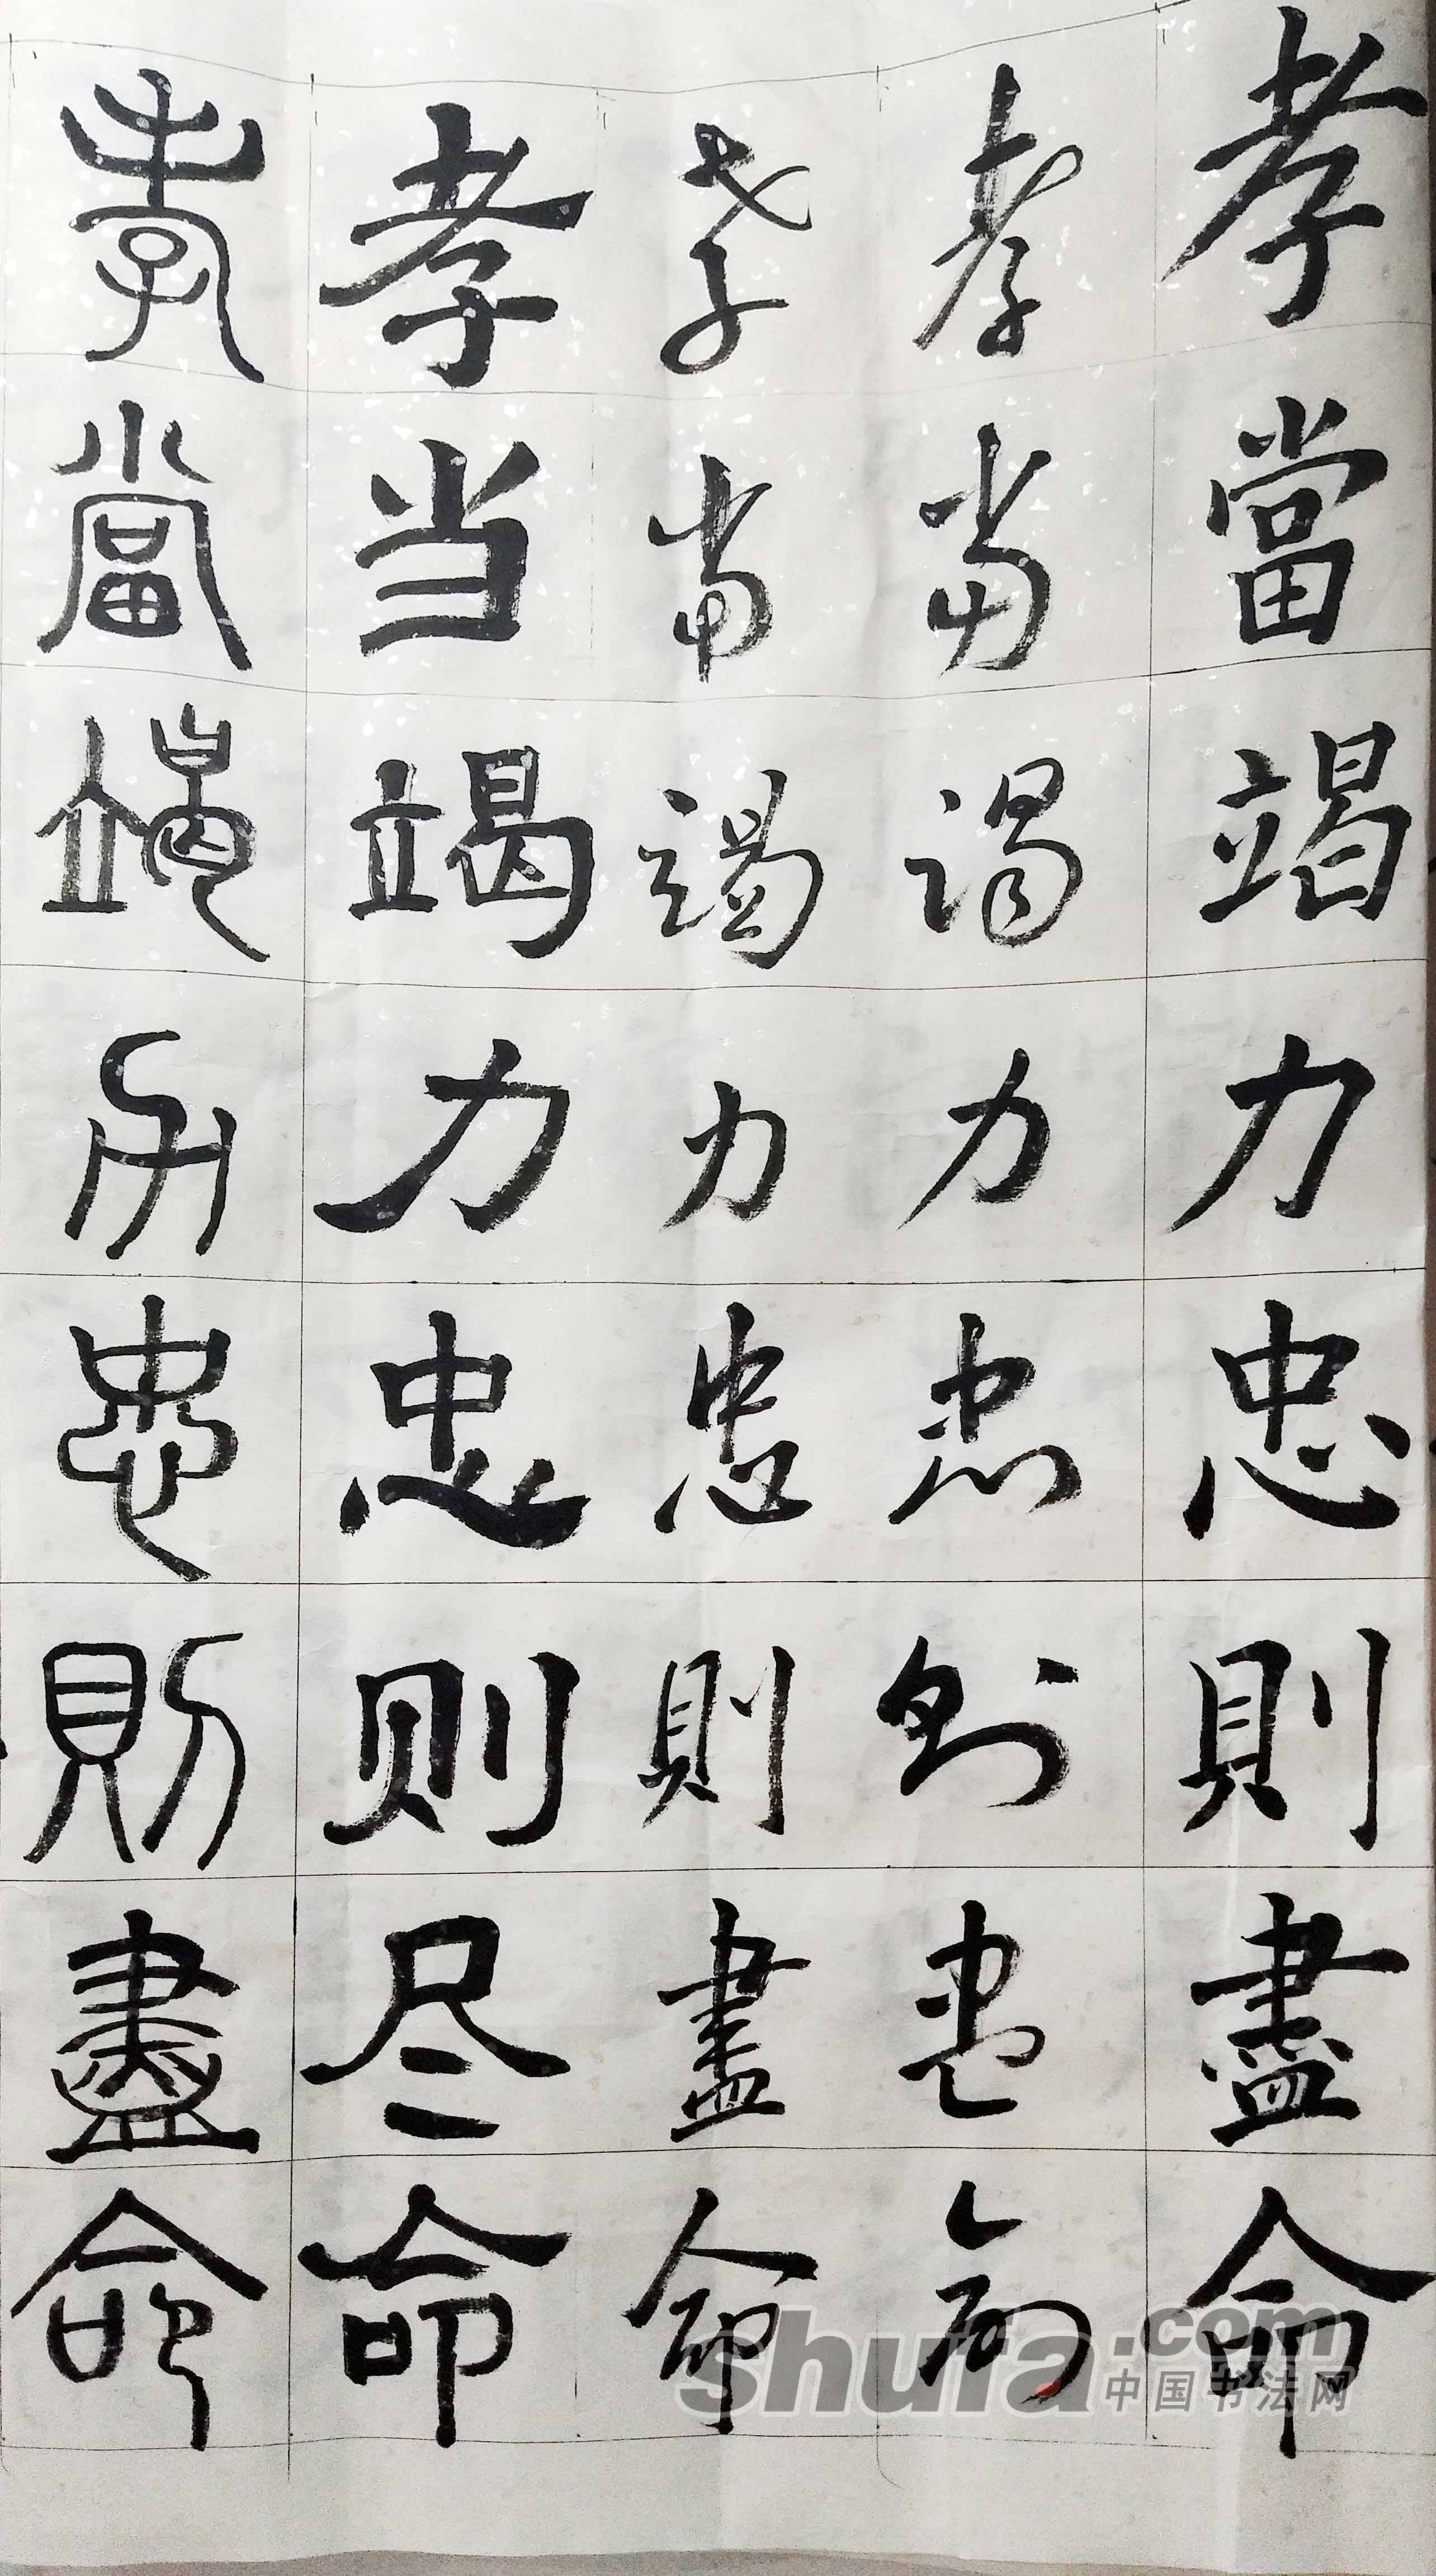 孝當竭力忠則盡命
孝當竭力忠則盡命
孝當竭力忠則盡命
孝当竭力忠则尽命
孝當竭力忠則盡命
shufa.com
中国书法网